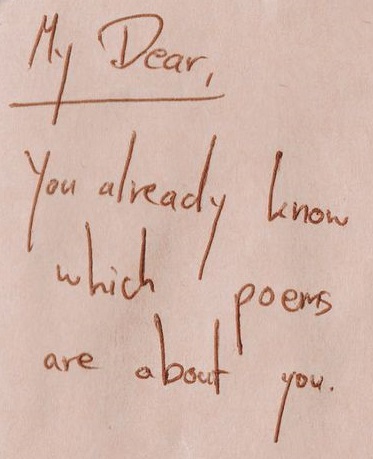 My Dear,
You already know
which poems
are about you.